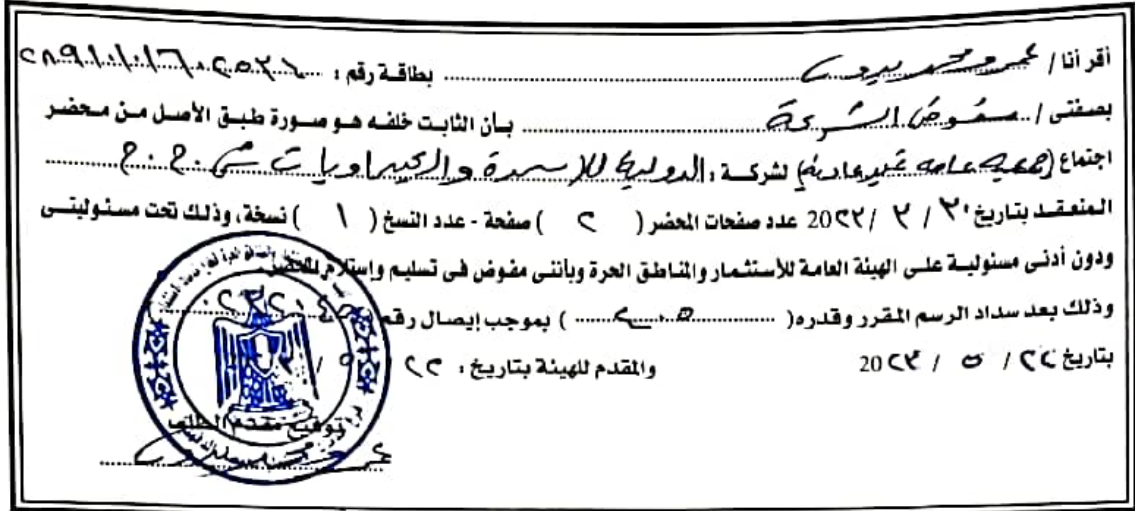 أقر أنا / عمرو محمد بيومى بطاقة رقم : ٢٨٩١٠١٠١٦٠٢٥٣٤
بصفتى / مفوض الشركة بأن الثابت خلفه هو صورة طبق الأصل من محضر
اجتماع (جمعية عامه غير عادية) لشركة : الدولية للأسمدة والكيماويات ش . م . م
المنعقد بتاريخ ٣٠ / ٣ / 20٢٣ عدد صفحات المحضر ( ٢ ) صفحة - عدد النسخ ( ١ ) نسخة ، وذلك تحت مسئوليتى
ودون أدنى مسئولية على الهيئة العامة للأستثمار والمناطق الحرة وبأننى مفوض فى تسليم وإستلام المحضر
وذلك بعد سداد الرسم المقرر وقدره ( ) بموجب إيصال رقم
بتاريخ ٢٢ / ٥ / 20٢٣ والمقدم للهيئة بتاريخ : ٢٢ / ٥ /
توقيع مقدم الطلب